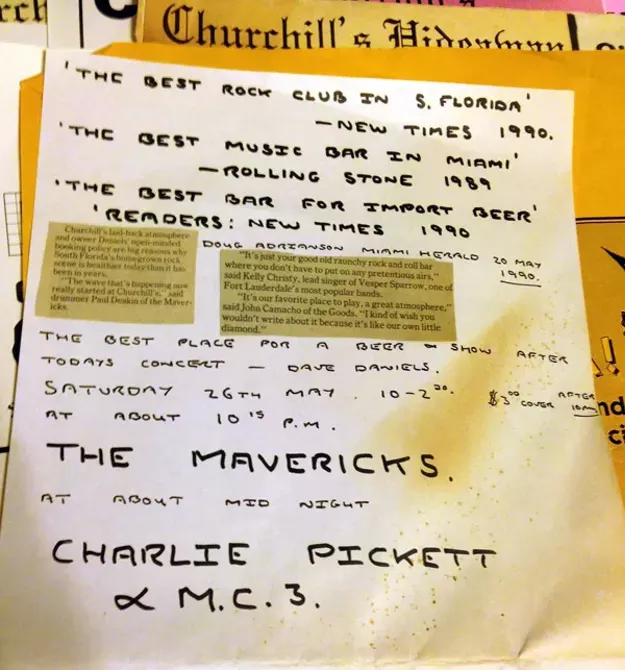 Churchill's Hideaway
'THE BEST ROCK CLUB IN S. FLORIDA'
—NEW TIMES 1990.
'THE BEST MUSIC BAR IN MIAMI'
—ROLLING STONE 1989
'THE BEST BAR FOR IMPORT BEER'
'READERS: NEW TIMES 1990
DOUG ADRIANSON MIAMI HERALD 20 MAY
1990.
Churchill's laid-back atmosphere
and owner Daniels' open-minded
booking policy are big reasons why
South Florida's homegrown rock
scene is healthier today than it has
been in years.
"The wave that's happening now
really started at Churchill's," said
drummer Paul Deakin of the Maver-
icks.
"It's just your good old raunchy rock and roll bar
where you don't have to put on any pretentious airs,"
said Kelly Christy, lead singer of Vesper Sparrow, one of
Fort Lauderdale's most popular bands.
"It's our favorite place to play, a great atmosphere,"
said John Camacho of the Goods. "I kind of wish you
wouldn't write about it because it's like our own little
diamond."
THE BEST PLACE FOR A BEER & SHOW AFTER
TODAYS CONCERT — DAVE DANIELS.
SATURDAY 26TH MAY. 10-2³⁰. $3⁰⁰ COVER AFTER 10PM
AT ABOUT 10¹⁵ P.M.
THE MAVERICKS.
AT ABOUT MID NIGHT
CHARLIE PICKETT
& M.C.3.